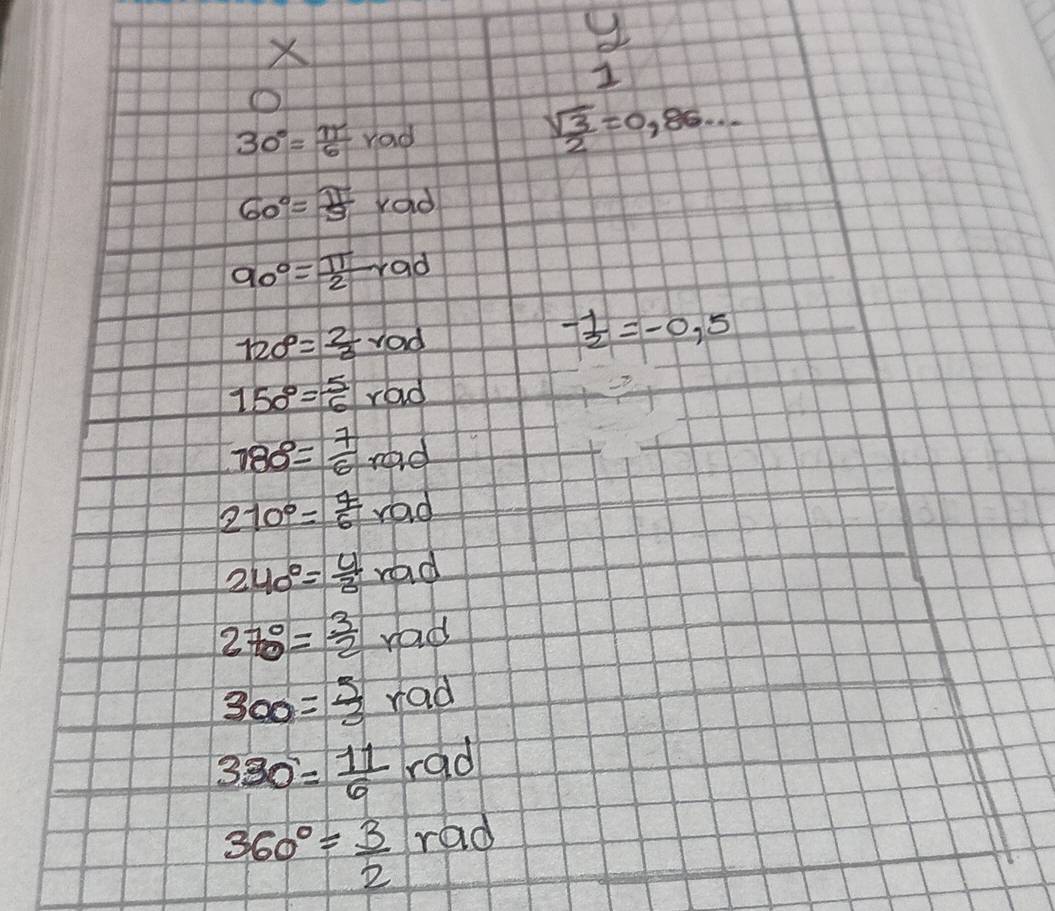 x y
0 1
30° = π/6 rad √3/2 = 0,86...
60° = π/3 rad
90° = π/2 rad
120° = 2/3 rad -1/2 = -0,5
150° = 5/6 rad
180° = 7/6 rad
210° = 7/6 rad
240° = 4/3 rad
270° = 3/2 rad
300 = 5/3 rad
330 = 11/6 rad
360° = 3/2 rad